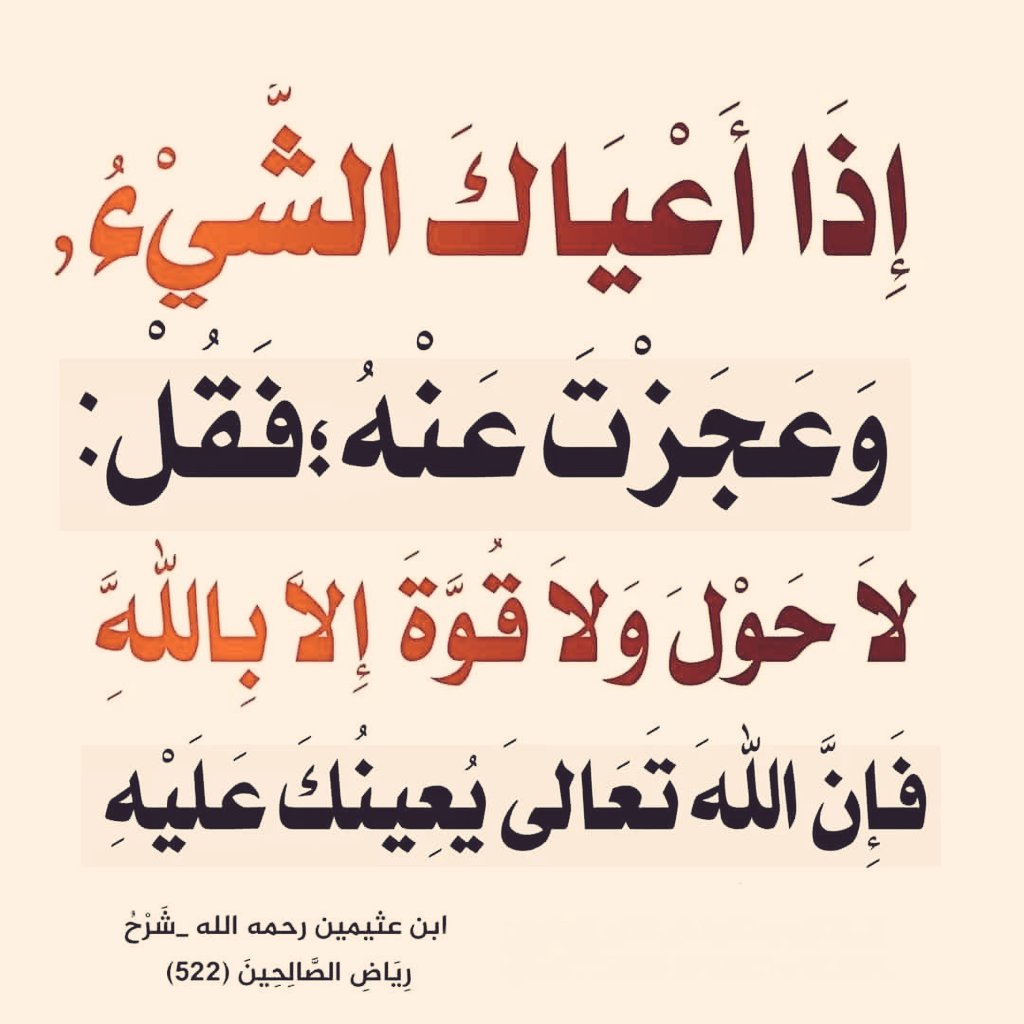 إِذَا أَعْيَاكَ الشَّيْءُ,
وَعَجَزْتَ عَنْهُ ؛فَقُلْ:
لاَ حَوْلَ وَلاَ قُوَّةَ إِلاَّ بِاللَّهِ
فَإِنَّ اللهَ تَعَالىَ يُعِينُكَ عَلَيْهِ
ابن عثيمين رحمه الله _شَرْحُ
رِيَاضِ الصَّالِحِينَ (522)